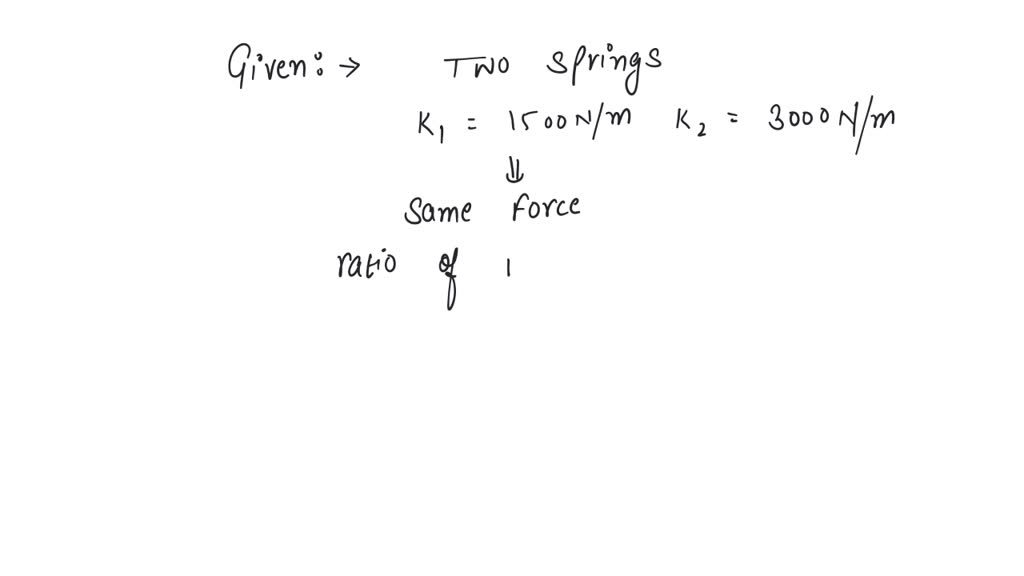 Given: → Two springs
K₁ = 1500 N/m K₂ = 3000 N/m
⇓
Same Force
ratio of